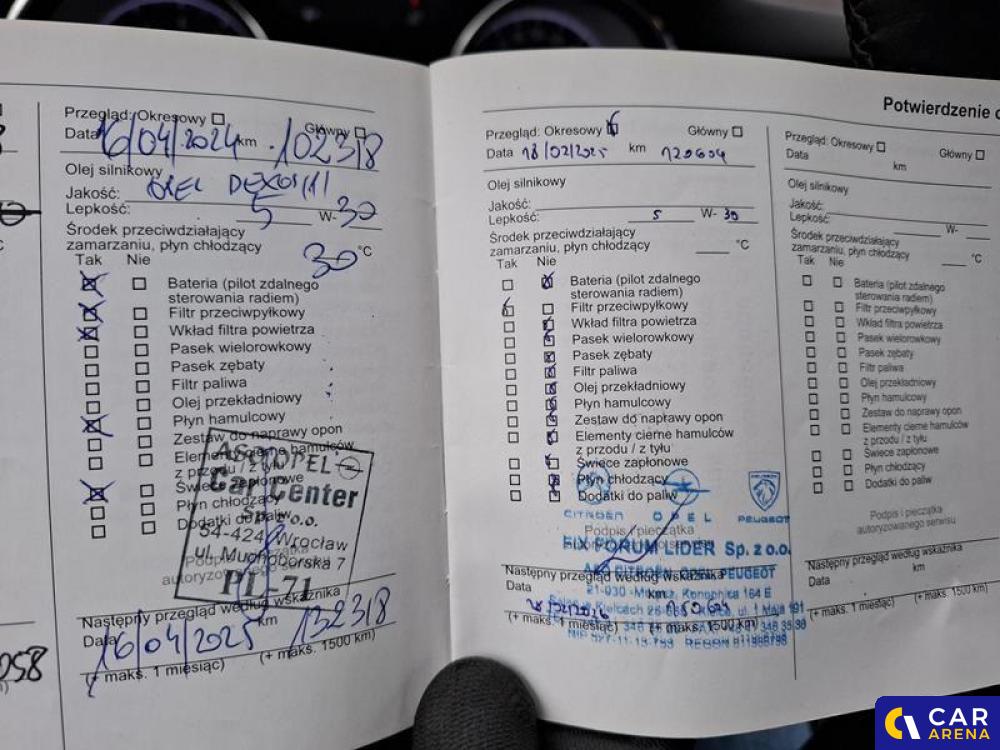 Przegląd: Okresowy Główny
Data 16/04/2024 km 102318
Olej silnikowy
Jakość: OPEL DEXOS(1)
Lepkość: 5 W- 30
Środek przeciwdziałający
zamarzaniu, płyn chłodzący 30 °C
Tak Nie
Bateria (pilot zdalnego
sterowania radiem)
Filtr przeciwpyłkowy
Wkład filtra powietrza
Pasek wielorowkowy
Pasek zębaty
Filtr paliwa
Olej przekładniowy
Płyn hamulcowy
Zestaw do naprawy opon
Elementy cierne hamulców
z przodu / z tyłu
Świece zapłonowe
Płyn chłodzący
Dodatki do paliw
OPEL
Car Center
Sp. z o.o.
54-424 Wrocław
ul. Muchoborska 7
PL 71
Następny przegląd według wskaźnika
Data 16/04/2025 km 132318
(+ maks. 1 miesiąc) (+ maks. 1500 km)
058
Potwierdzenie
Przegląd: Okresowy Główny
Data 18/02/2025 km 120604
Olej silnikowy
Jakość:
Lepkość: 5 W- 30
Środek przeciwdziałający
zamarzaniu, płyn chłodzący °C
Tak Nie
Bateria (pilot zdalnego
sterowania radiem)
Filtr przeciwpyłkowy
Wkład filtra powietrza
Pasek wielorowkowy
Pasek zębaty
Filtr paliwa
Olej przekładniowy
Płyn hamulcowy
Zestaw do naprawy opon
Elementy cierne hamulców
z przodu / z tyłu
Świece zapłonowe
Płyn chłodzący
Dodatki do paliw
CITROËN OPEL PEUGEOT
Podpis i pieczątka
FIX FORUM LIDER Sp. z o.o.
Następny przegląd według wskaźnika
Data km
(+ maks. 1 miesiąc) (+ maks. 1500 km)
Przegląd: Okresowy Główny
Data km
Olej silnikowy
Jakość:
Lepkość: W-
Środek przeciwdziałający
zamarzaniu, płyn chłodzący °C
Tak Nie
Bateria (pilot zdalnego
sterowania radiem)
Filtr przeciwpyłkowy
Wkład filtra powietrza
Pasek wielorowkowy
Pasek zębaty
Filtr paliwa
Olej przekładniowy
Płyn hamulcowy
Zestaw do naprawy opon
Elementy cierne hamulców
z przodu / z tyłu
Świece zapłonowe
Płyn chłodzący
Dodatki do paliw
Podpis i pieczątka
autoryzowanego serwisu
Następny przegląd według wskaźnika
Data km
(+ maks. 1 miesiąc) (+ maks. 1500 km)
CAR
ARENA